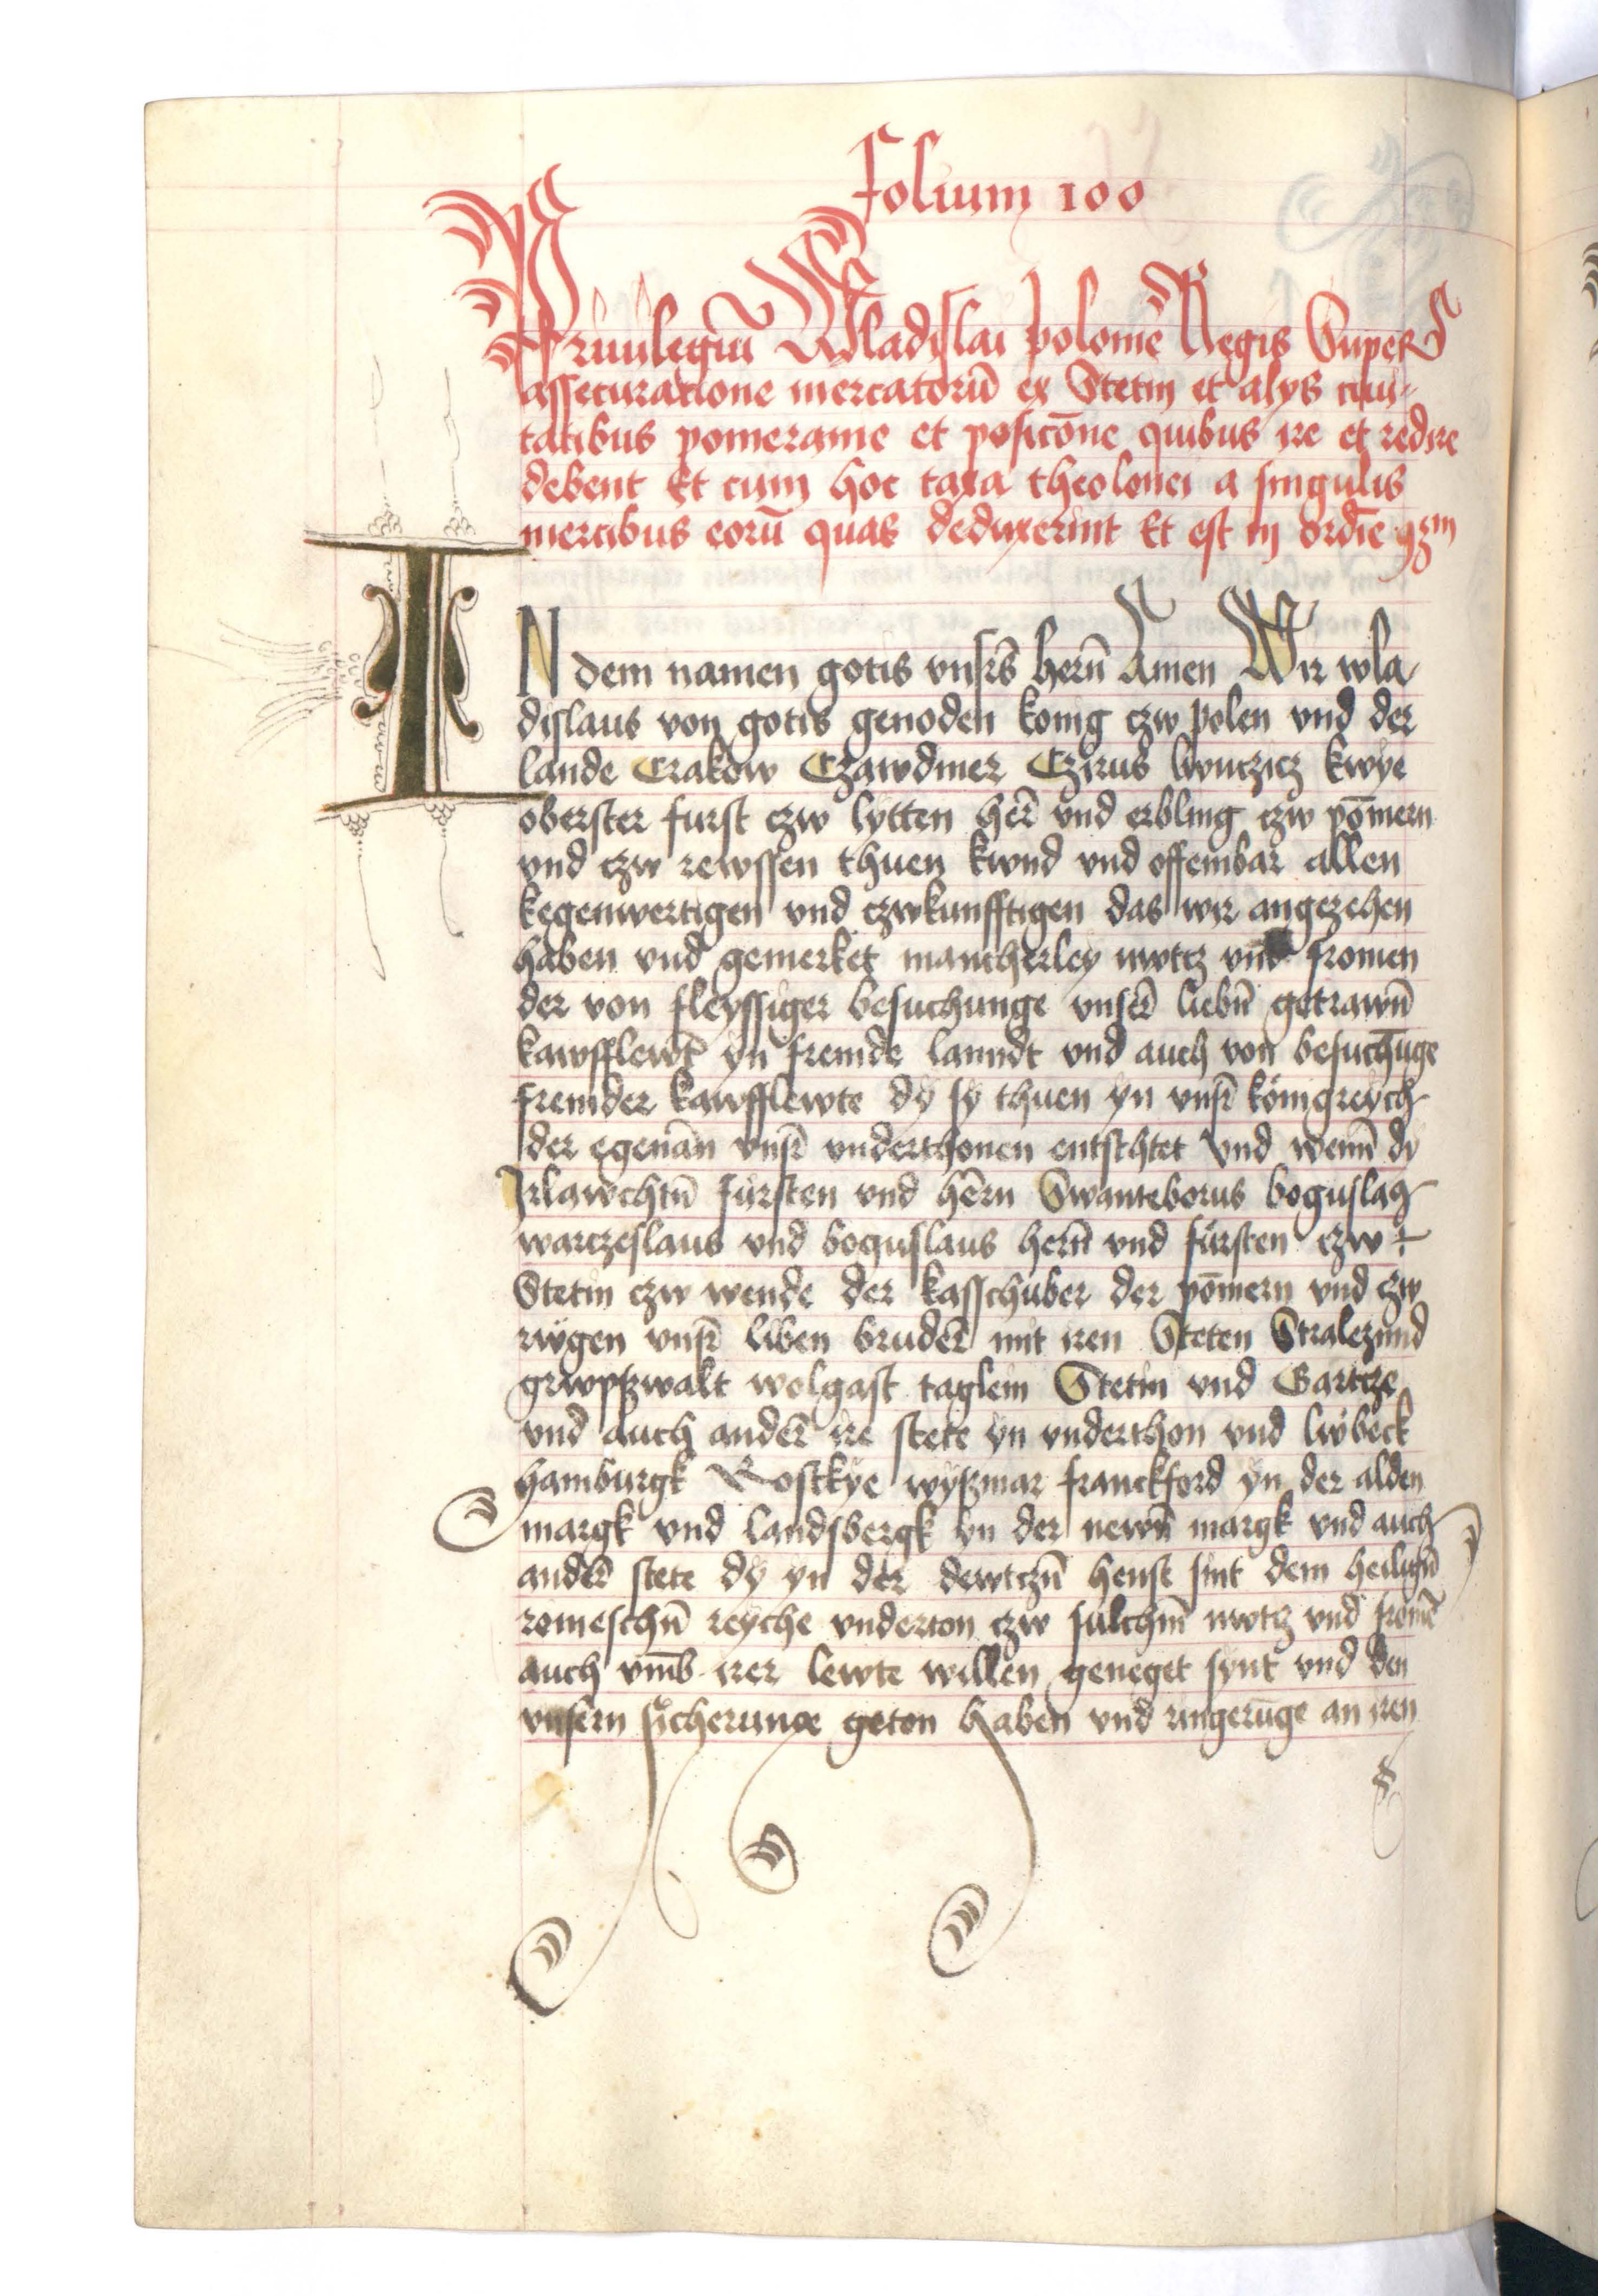 folium 100
Priuilegiū Wladislai polonie Regis Super
assecuratione mercatorū ex Stetin et alys ciui-
tatibus pomeranie et posicōne quibus ire et redire
debent Et cum hoc taxa theolonei a singulis
mercibus eorū quas deduxerint Et est in ordīe
IN dem namen gotis vnsrs herñ Amen Wir wla-
dislaus von gotis genoden konig czw polen vnd der
lande Crakow Czawdmer Czirus kwye
oberster furst czw lytten her̄ vnd erbling czw pōmern
vnd czw rewssen thuen kwnd vnd offembar allen
kegenwertigen vnd czwkunfftigen das wir angezehen
haben vnd gemerket mancherley nwtcz vnd fromen
der von fleyssiger besuchunge vnser̄ liebñ getrawñ
kawfflewt yn fremde lanndt vnd auch von besuchūge
fremder kawfflewte dy sy thuen yn vnsr̄ königreych
der egenān vnsr̄ vnderthonen entschtet vnd wenn dy
Irlawchtñ fürsten vnd hern Swanteborus boguslaus
warczeslaus vnd boguslaus hern vnd fürsten czw
Stetin czw wende der kasschuber der pōmern vnd czw
rwgen vnsr̄ liben bruder̄ mit iren Steten Stralezund
grwpszwalt wolgast taglem Stetin vnd Gartcze
vnd auch ander̄ ire stete yn vnderthon vnd lwbeck
hamburgk Rostkye wyszmar franckford yn der alden
margk vnd landsbergk yn der newñ margk vnd auch
ander̄ stete dy yn der dewtczñ henst sint dem heiligñ
romeschñ reyche vnderton czw sulchm nwtcz vnd fromē
auch vmb irer lewte willen geneget synt vnd den
vnsern sicherunge geton haben vnd an iren